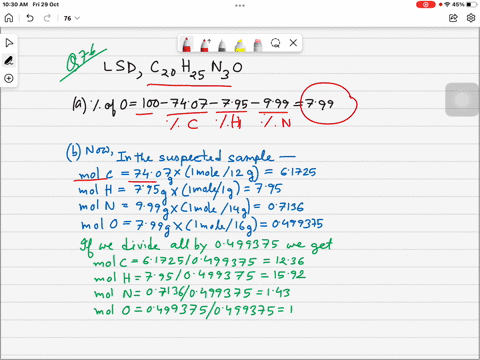 10:30 AM Fri 29 Oct
45%
76
Q76
LSD, C20H25N3O
(a) % of O = 100 - 74.07 - 7.95 - 9.99 = 7.99
% C % H % N
(b) Now, In the suspected sample —
mol C = 74.07g × (1mole/12 g) = 6.1725
mol H = 7.95g × (1mole/1g) = 7.95
mol N = 9.99g × (1mole/14g) = 0.7136
mol O = 7.99g × (1mole/16g) = 0.499375
If we divide all by 0.499375 we get
mol C = 6.1725/0.499375 = 12.36
mol H = 7.95/0.499375 = 15.92
mol N = 0.7136/0.499375 = 1.43
mol O = 0.499375/0.499375 = 1